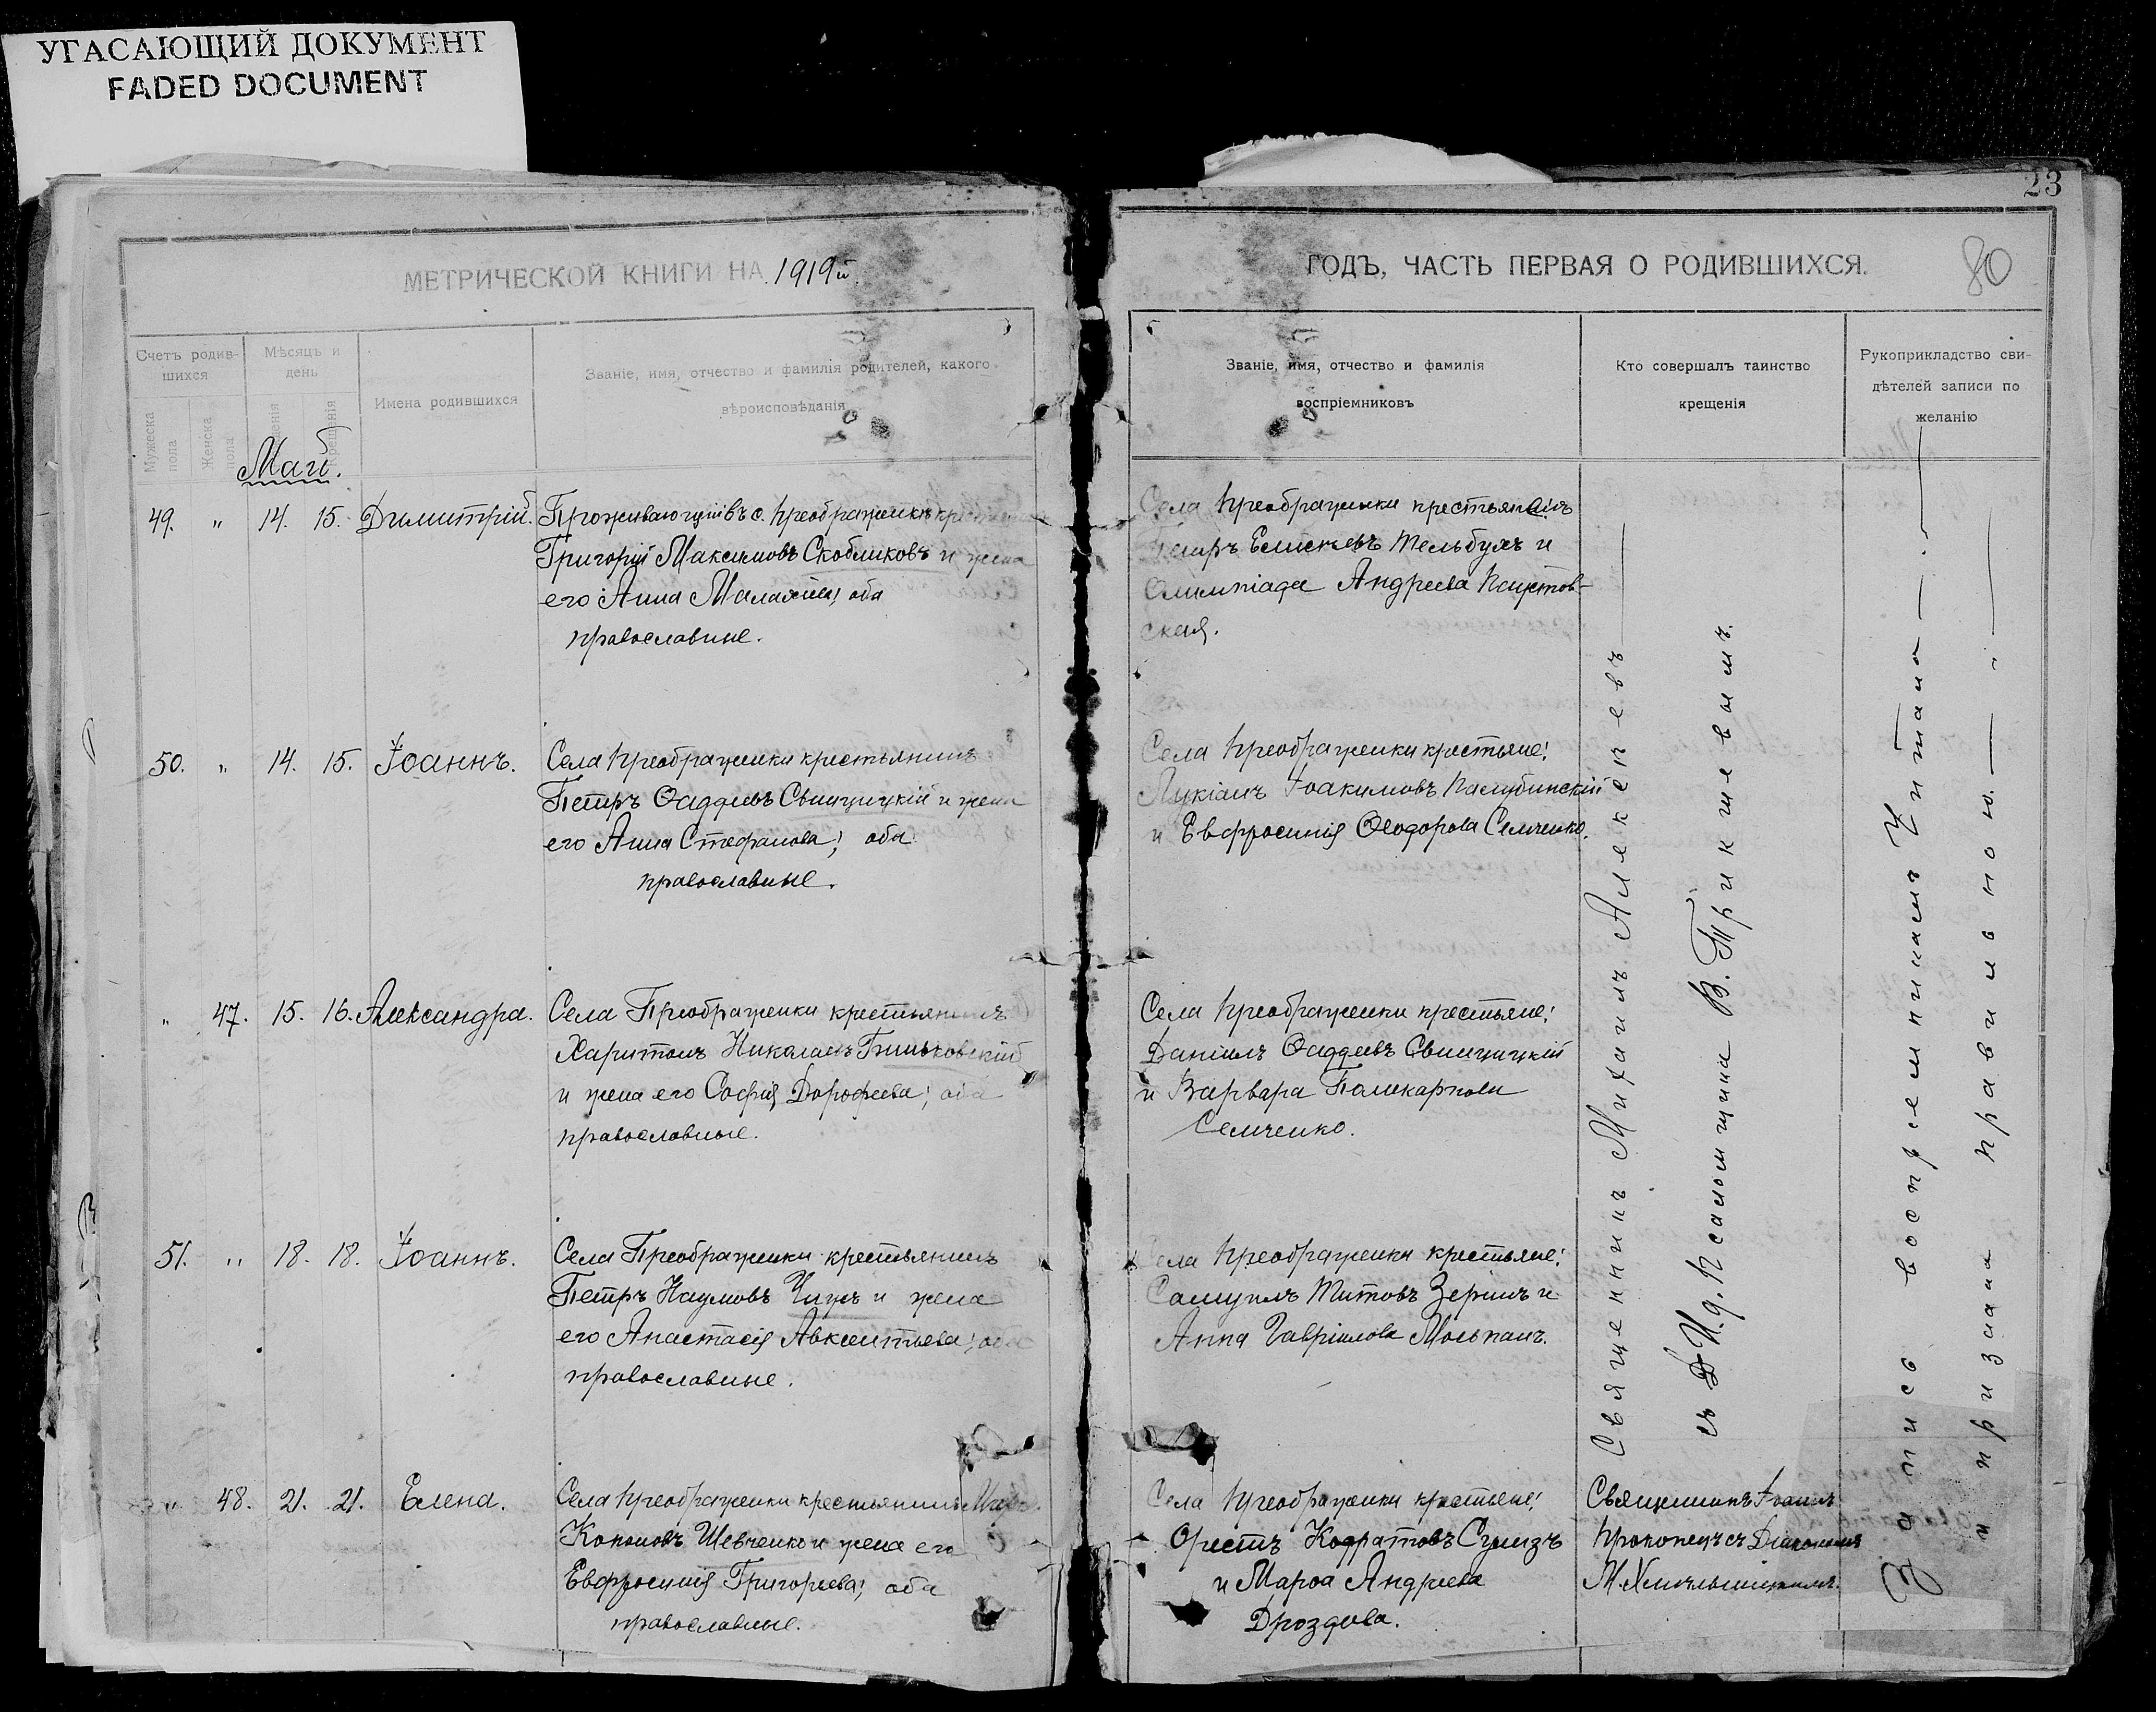 УГАСАЮЩИЙ ДОКУМЕНТ
FADED DOCUMENT
23
МЕТРИЧЕСКОЙ КНИГИ НА 1919й
ГОДЪ, ЧАСТЬ ПЕРВАЯ О РОДИВШИХСЯ.
80
Счетъ родив-
шихся
Мужеска
пола
Женска
пола
Мѣсяцъ и
день
Имена родившихся
Званіе, имя, отчество и фамилія родителей, какого
вѣроисповѣданія
Званіе, имя, отчество и фамилія
воспріемниковъ
Кто совершалъ таинство
крещенія
Рукоприкладство сви-
дѣтелей записи по
желанію
Май.
49. " 14. 15. Димитрій.
Проживающій въ с. Преображенкѣ
Григорій Максимовъ Скобликовъ и жена
его Анна оба
православные.
Села Преображенки
Петръ Тельбухъ и
Олимпіада Андреева
ская.
50. " 14. 15. Іоаннъ.
Села Преображенки крестьянинъ
Петръ Ѳаддеевъ Свинцицкій и жена
его Анна Стефанова; оба
православные.
Села Преображенки крестьяне:
Лукіанъ Іоакимовъ
и Евфросинія Ѳеодорова Семченко.
" 47. 15. 16. Александра.
Села Преображенки крестьянинъ
Харитонъ Николаевъ
и жена его Софія Дорофеева; оба
православные.
Села Преображенки крестьяне:
Даніилъ Ѳаддеевъ Свинцицкій
и Варвара Поликарпова
Семченко.
51. " 18. 18. Іоаннъ.
Села Преображенки крестьянинъ
Петръ Наумовъ и жена
его Анастасія Авксентьева; оба
православные.
Села Преображенки крестьяне:
Самуилъ Титовъ и
Анна Гавріилова
" 48. 21. 21. Елена.
Села Преображенки крестьянинъ
Кононовъ Шевченко и жена его
Евфросинія Григорьева; оба
православные.
Села Преображенки крестьяне:
Орестъ Кодратовъ
и Марѳа Андреева
Дроздова.
Священникъ Михаилъ Алексеевъ
съ И. д. Псаломщика В. Трикишевымъ.
Священникъ Іоаннъ
Прокопецъ съ Діакономъ
Запись воспріемникамъ читана
и признана правильною.